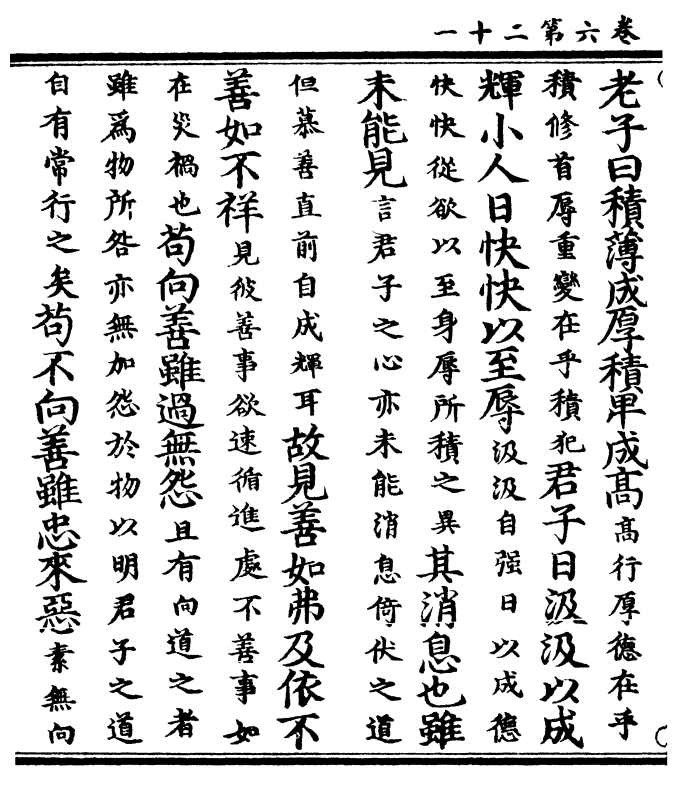 卷六第二十一
老子曰積薄成厚積卑成高高行厚德在乎
積修首辱重變在乎積犯君子日汲汲以成
輝小人日快快以至辱汲汲自强日以成德
快快從欲以至身辱所積之異其消息也雖
未能見言君子之心亦未能消息倚伏之道
但慕善直前自成輝耳故見善如弗及依不
善如不祥見彼善事欲速循進處不善事如
在災禍也苟向善雖過無怨且有向道之者
雖爲物所咎亦無加怨於物以明君子之道
自有常行之矣苟不向善雖忠來惡素無向